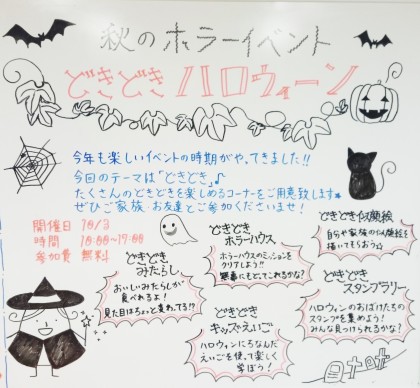 秋のホラーイベント
どきどきハロウィーン
今年も楽しいイベントの時期がやってきました!!
今回のテーマは「どきどき」♪
たくさんのどきどきを楽しめるコーナーをご用意致します★
ぜひご家族・お友達とご参加くださいませ!
開催日 10/3
時間 10:00~17:00
参加費 無料
どきどき
みたらし
おいしいみたらしが
食べれるよ!
見た目はちょっと変わってる!?
どきどき
ホラーハウス
ホラーハウスのミッションを
クリアしよう!!
無事にもどってこれるかな?
どきどき似顔絵
自分や家族の似顔絵を
描いてもらおう☆
どきどき
キッズえいご
ハロウィンにちなんだ
えいごを使って楽しく
学ぼう!
どきどき
スタンプラリー
ハロウィンのおばけたちの
スタンプを集めよう!
みんな見つけられるかな?